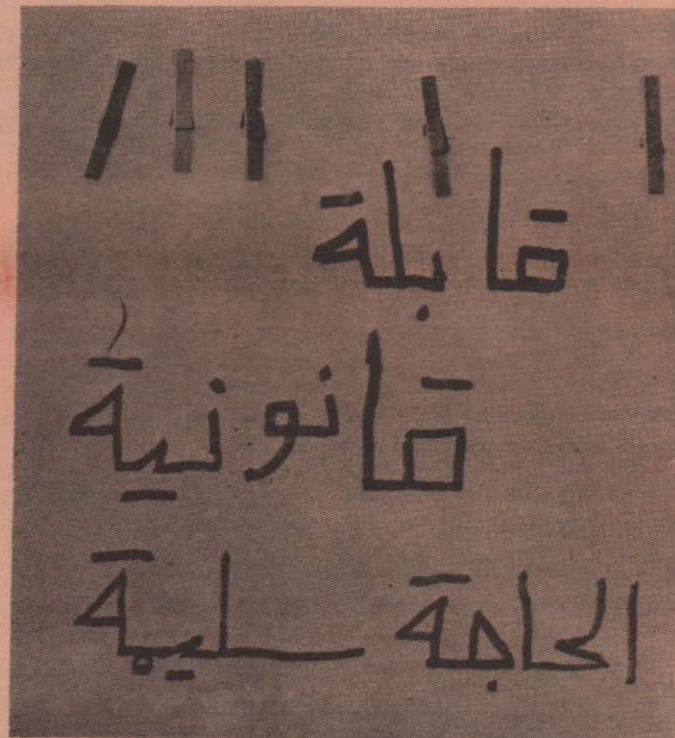 قابلة
قانونية
الحاجة سليمة